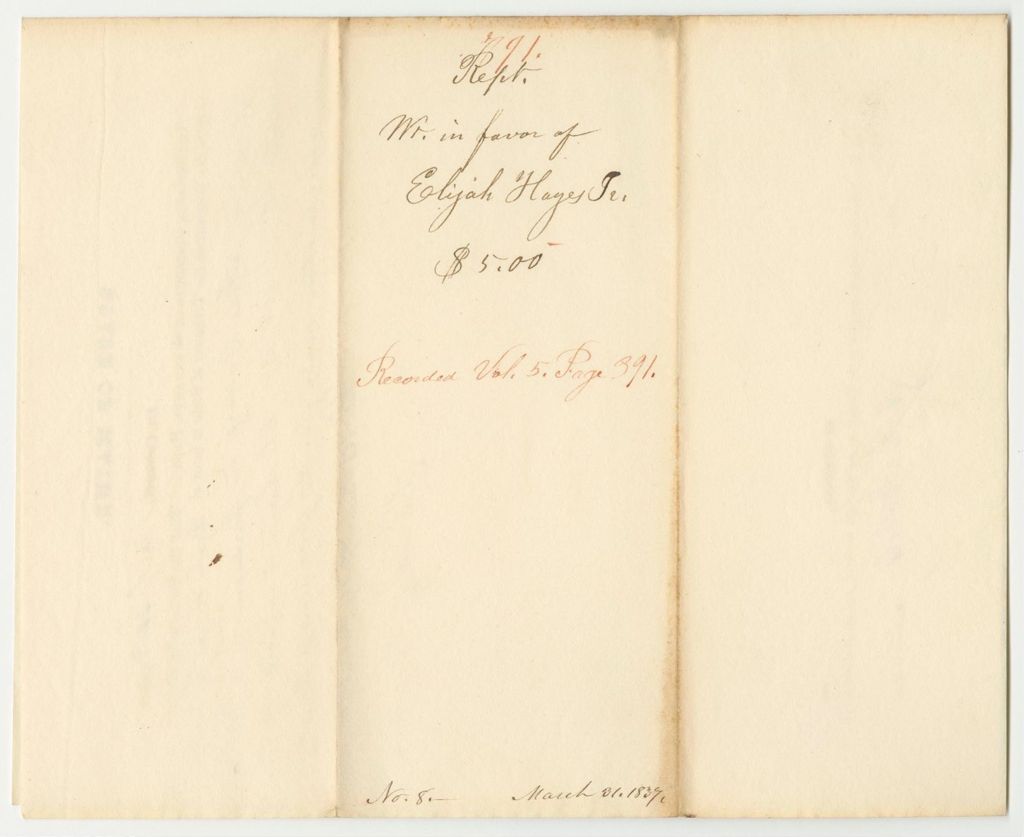 791.
Rept.
Wt. in favor of
Elijah Hayes Jr.
$ 5.00
Recorded Vol. 5. Page 391.
No. 8.— March 31. 1837.